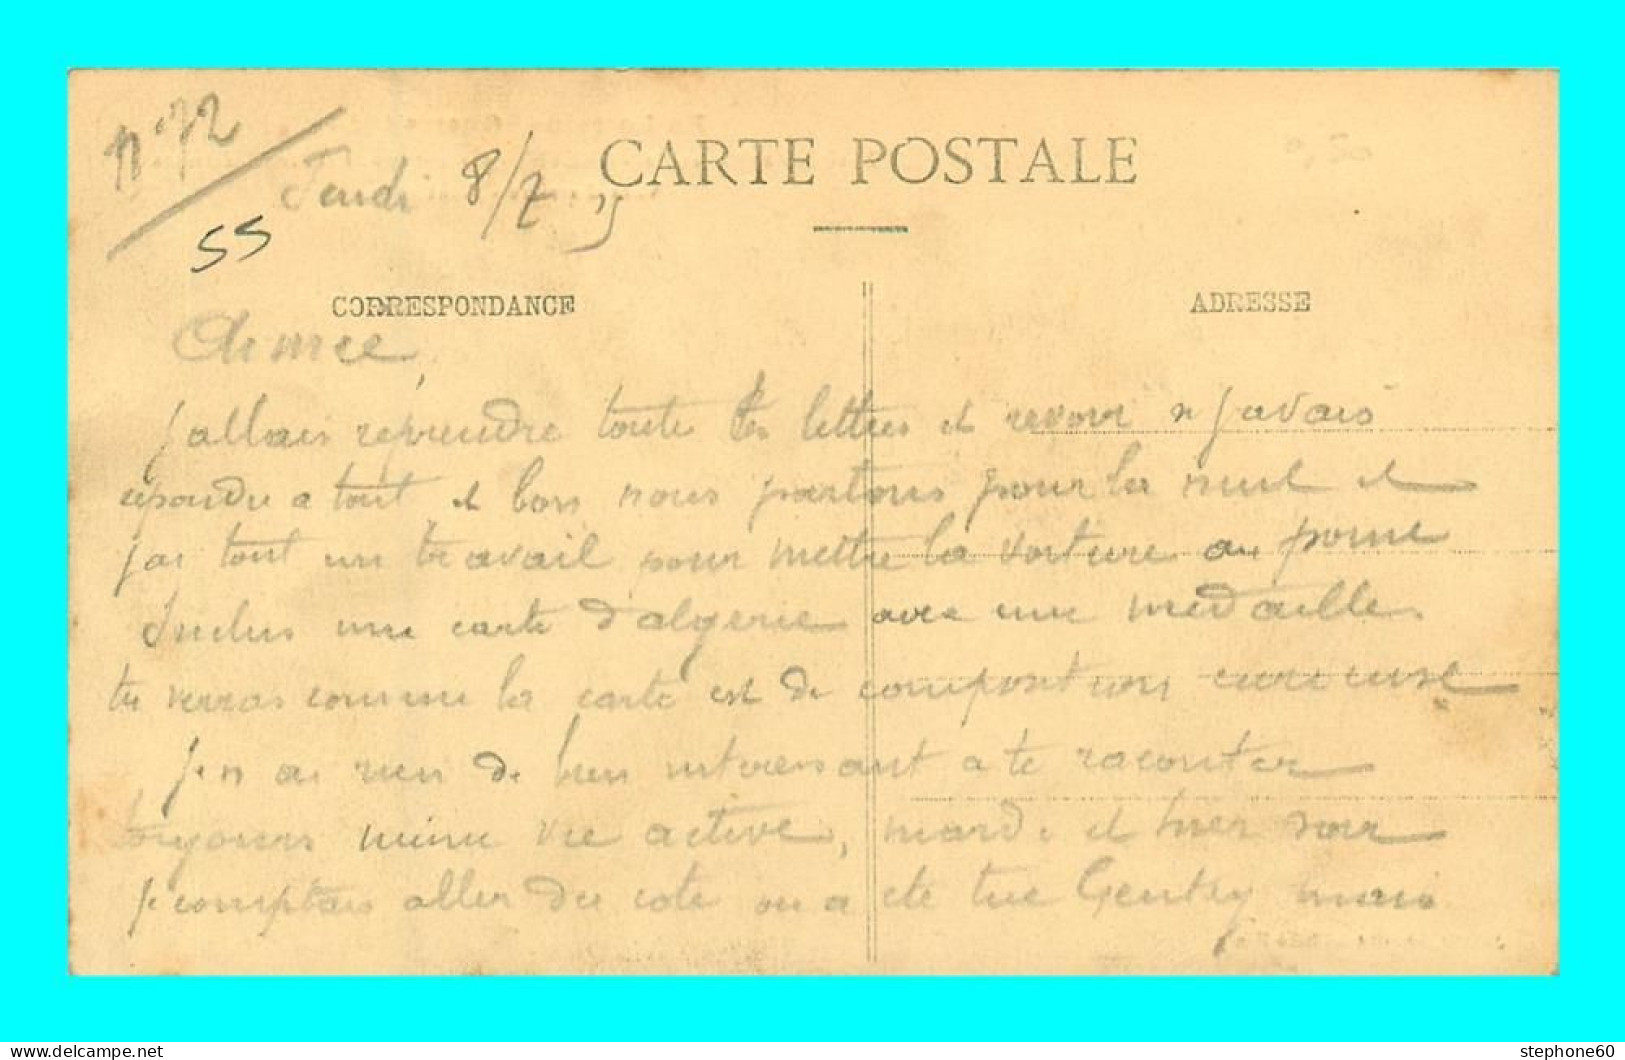 n° 72
Jeudi 8/7 15
CARTE POSTALE
0,50
55
CORRESPONDANCE
ADRESSE
Aimée,
J allais reprendre toute les lettres et revoir si j avais
repondu a tout et bon nous partons pour la nuit et
j ai tout un travail pour mettre la voiture au
Inclus une carte d'algerie avec une medaille
tu verras comme la carte est de composition curieuse
Je n ai rien de bien interessant a te raconter
toujours meme vie active, mardi et hier soir
Je comptais aller du cote ou a ete tue Gentry mais
stephone60